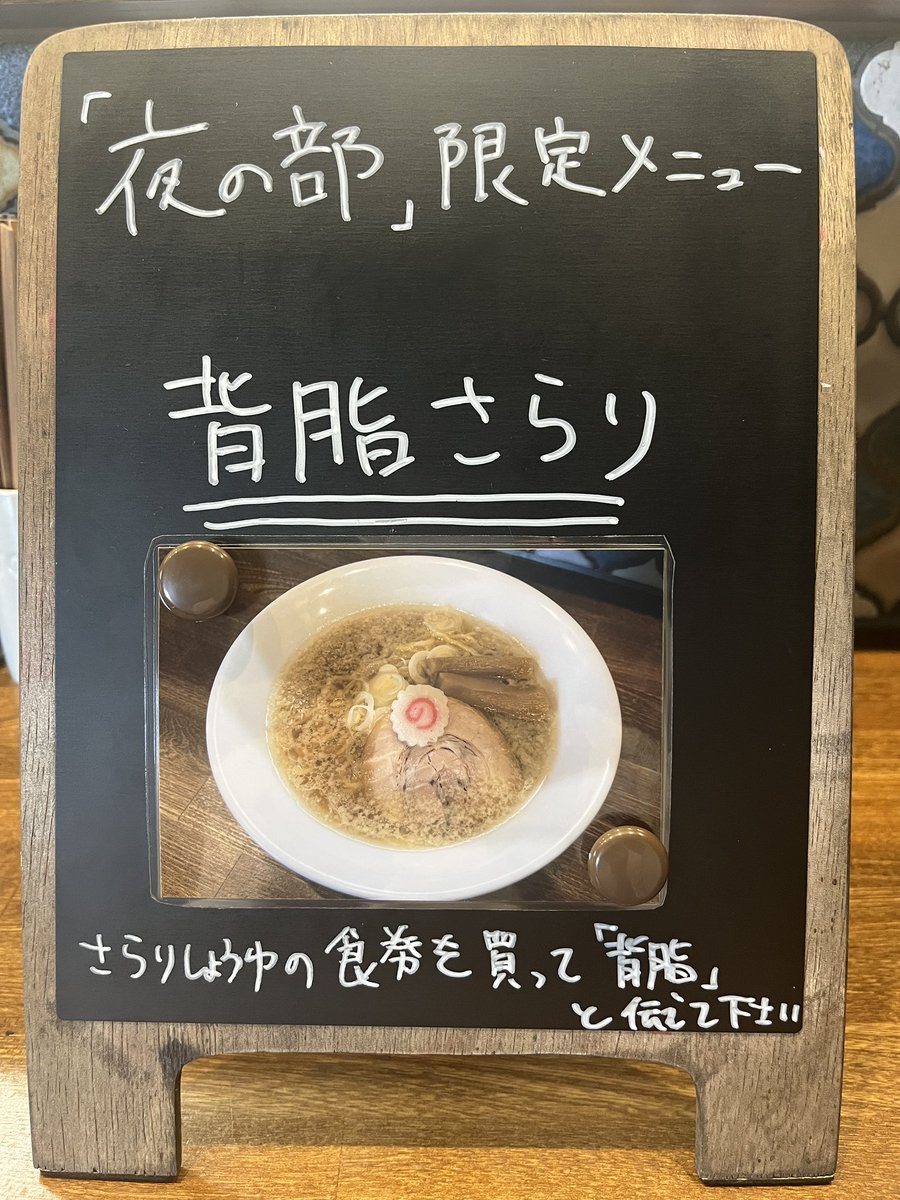 「夜の部」限定メニュー
背脂さらり
さらりしょうゆの食券を買って「背脂」
と伝えて下さい